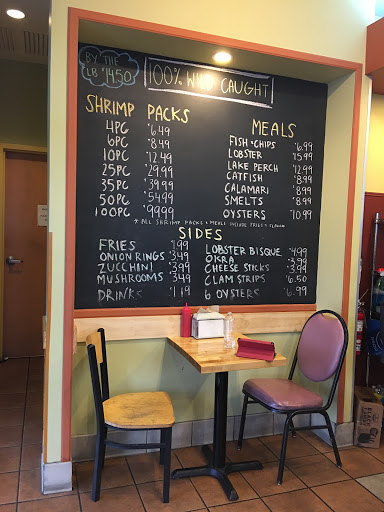 BY THE
LB $14.50
100% WILD CAUGHT
SHRIMP PACKS
4PC $6.49
6PC $8.49
10PC $12.49
25PC $29.99
35PC $39.99
50PC $54.99
100PC $99.99
MEALS
FISH & CHIPS $6.99
LOBSTER $15.99
LAKE PERCH $12.99
CATFISH $8.99
CALAMARI $8.99
SMELTS $8.99
OYSTERS $10.99
* ALL SHRIMP PACKS & MEALS INCLUDE FRIES &
SIDES
FRIES $1.99
ONION RINGS $3.49
ZUCCHINI $3.99
MUSHROOMS $3.49
DRINKS $1.19
LOBSTER BISQUE $4.99
OKRA $3.99
CHEESE STICKS $3.99
CLAM STRIPS $6.50
6 OYSTERS $6.99